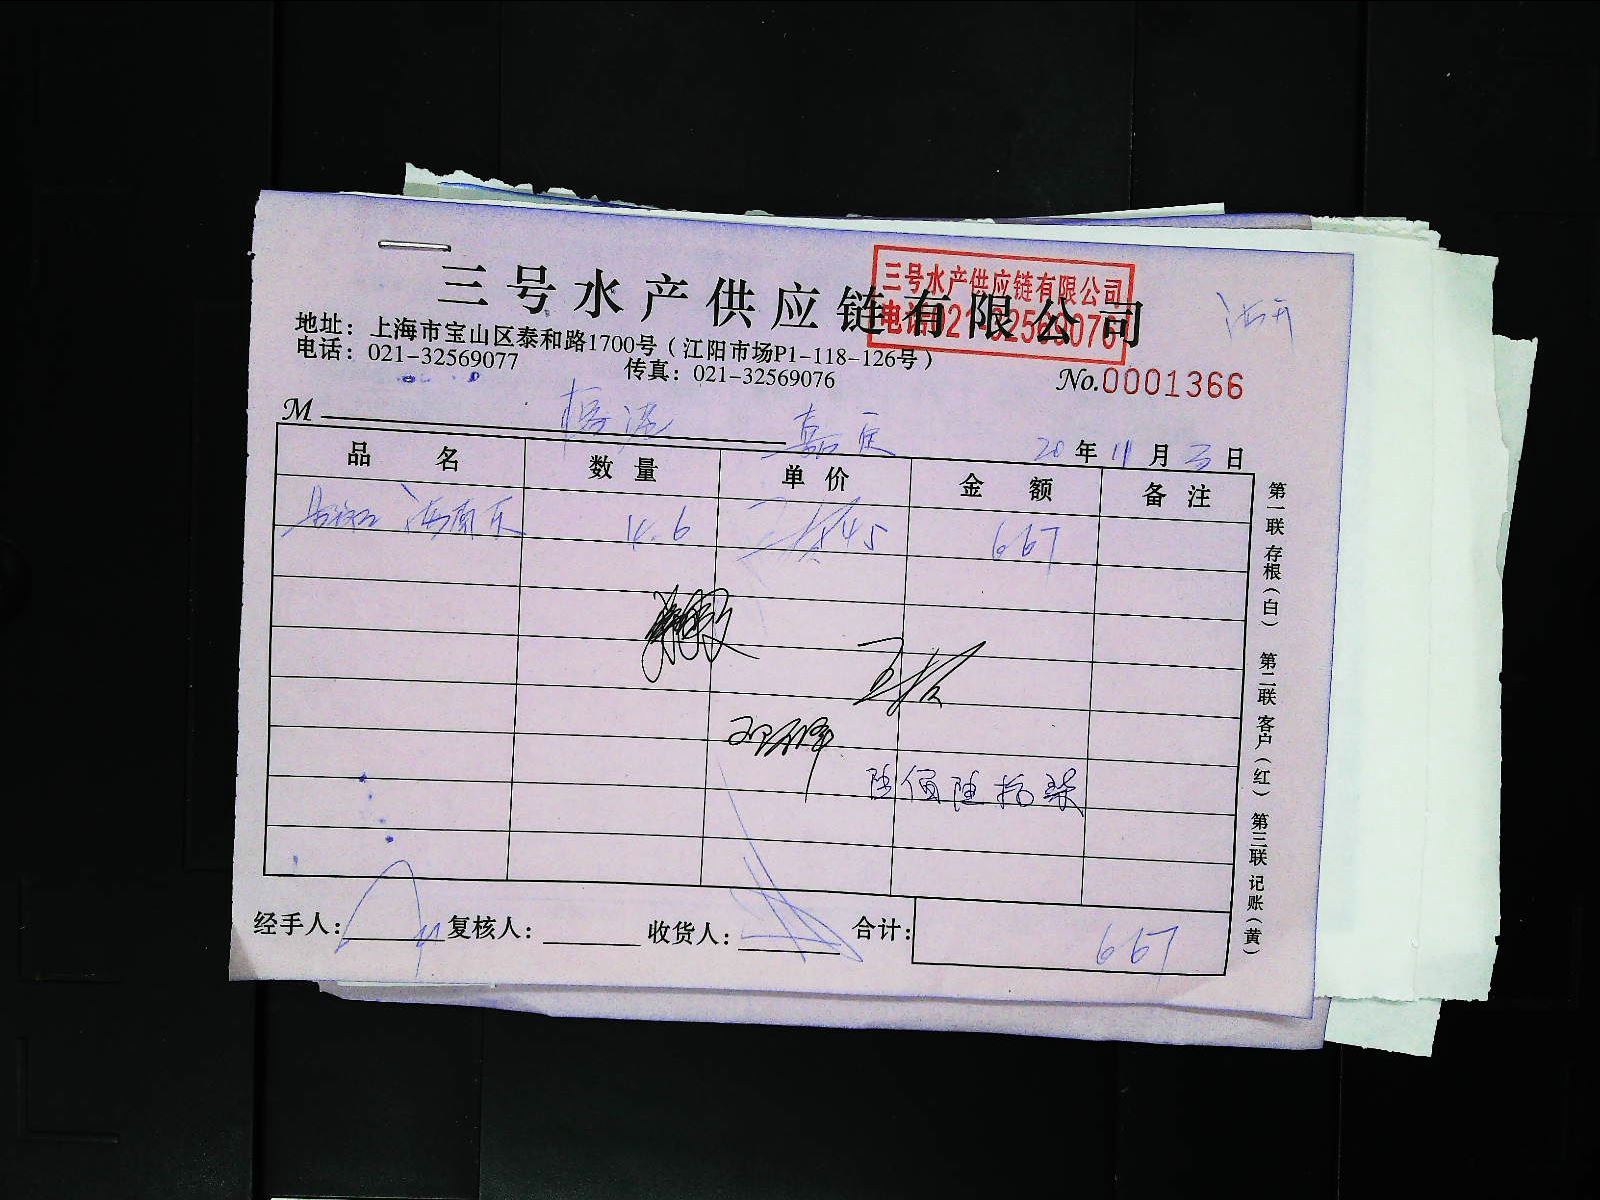 三号水产供应链有限公司
三号水产供应链有限公司
电话021-32569076
地址：上海市宝山区泰和路1700号（江阳市场P1-118-126号）
电话：021-32569077 传真：021-32569076
No.0001366
M 嘉定 20年11月3日
品名 数量 单价 金额 备注
45 667
陆佰陆拾柒
经手人： 复核人： 收货人： 合计：667
第一联存根（白） 第二联客户（红） 第三联记账（黄）